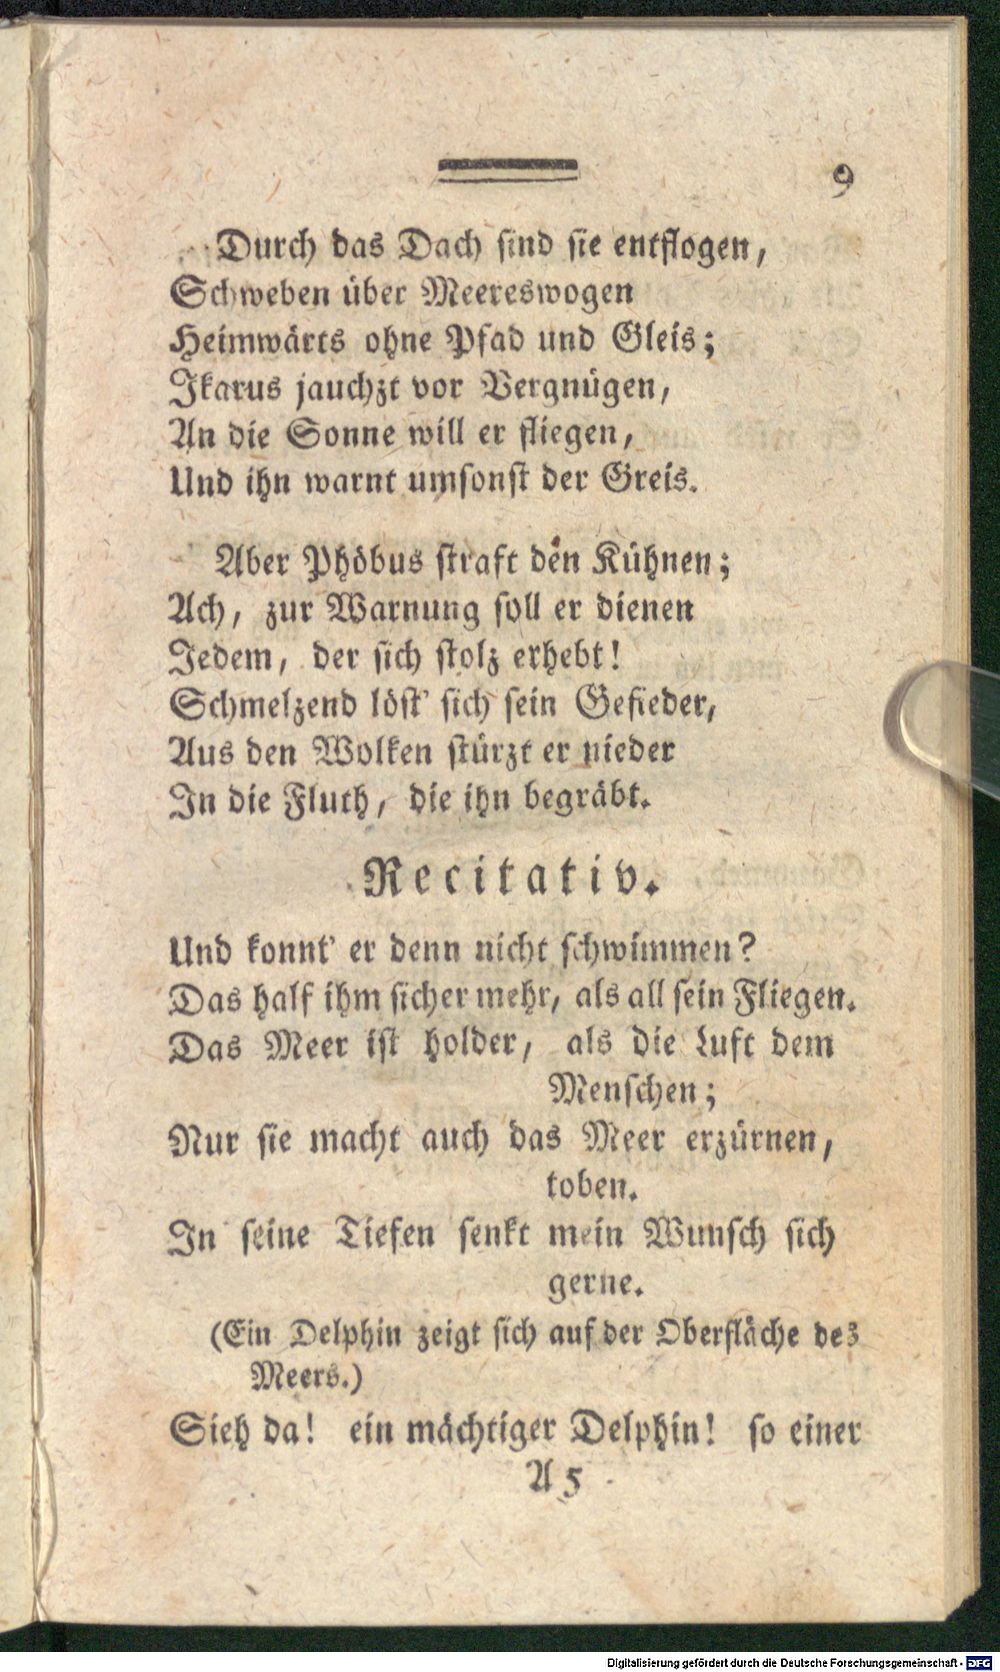 9
Durch das Dach sind sie entflogen,
Schweben über Meereswogen
Heimwärts ohne Pfad und Gleis;
Ikarus jauchzt vor Vergnügen,
An die Sonne will er fliegen,
Und ihn warnt umsonst der Greis.
Aber Phöbus straft den Kühnen;
Ach, zur Warnung soll er dienen
Jedem, der sich stolz erhebt!
Schmelzend löst' sich sein Gefieder,
Aus den Wolken stürzt er nieder
In die Fluth, die ihn begräbt.
Recitativ.
Und konnt' er denn nicht schwimmen?
Das half ihm sicher mehr, als all sein Fliegen.
Das Meer ist holder, als die Luft dem
Menschen;
Nur sie macht auch das Meer erzürnen,
toben.
In seine Tiefen senkt mein Wunsch sich
gerne.
(Ein Delphin zeigt sich auf der Oberfläche des
Meers.)
Sieh da! ein mächtiger Delphin! so einer
A 5
Digitalisierung gefördert durch die Deutsche Forschungsgemeinschaft - DFG